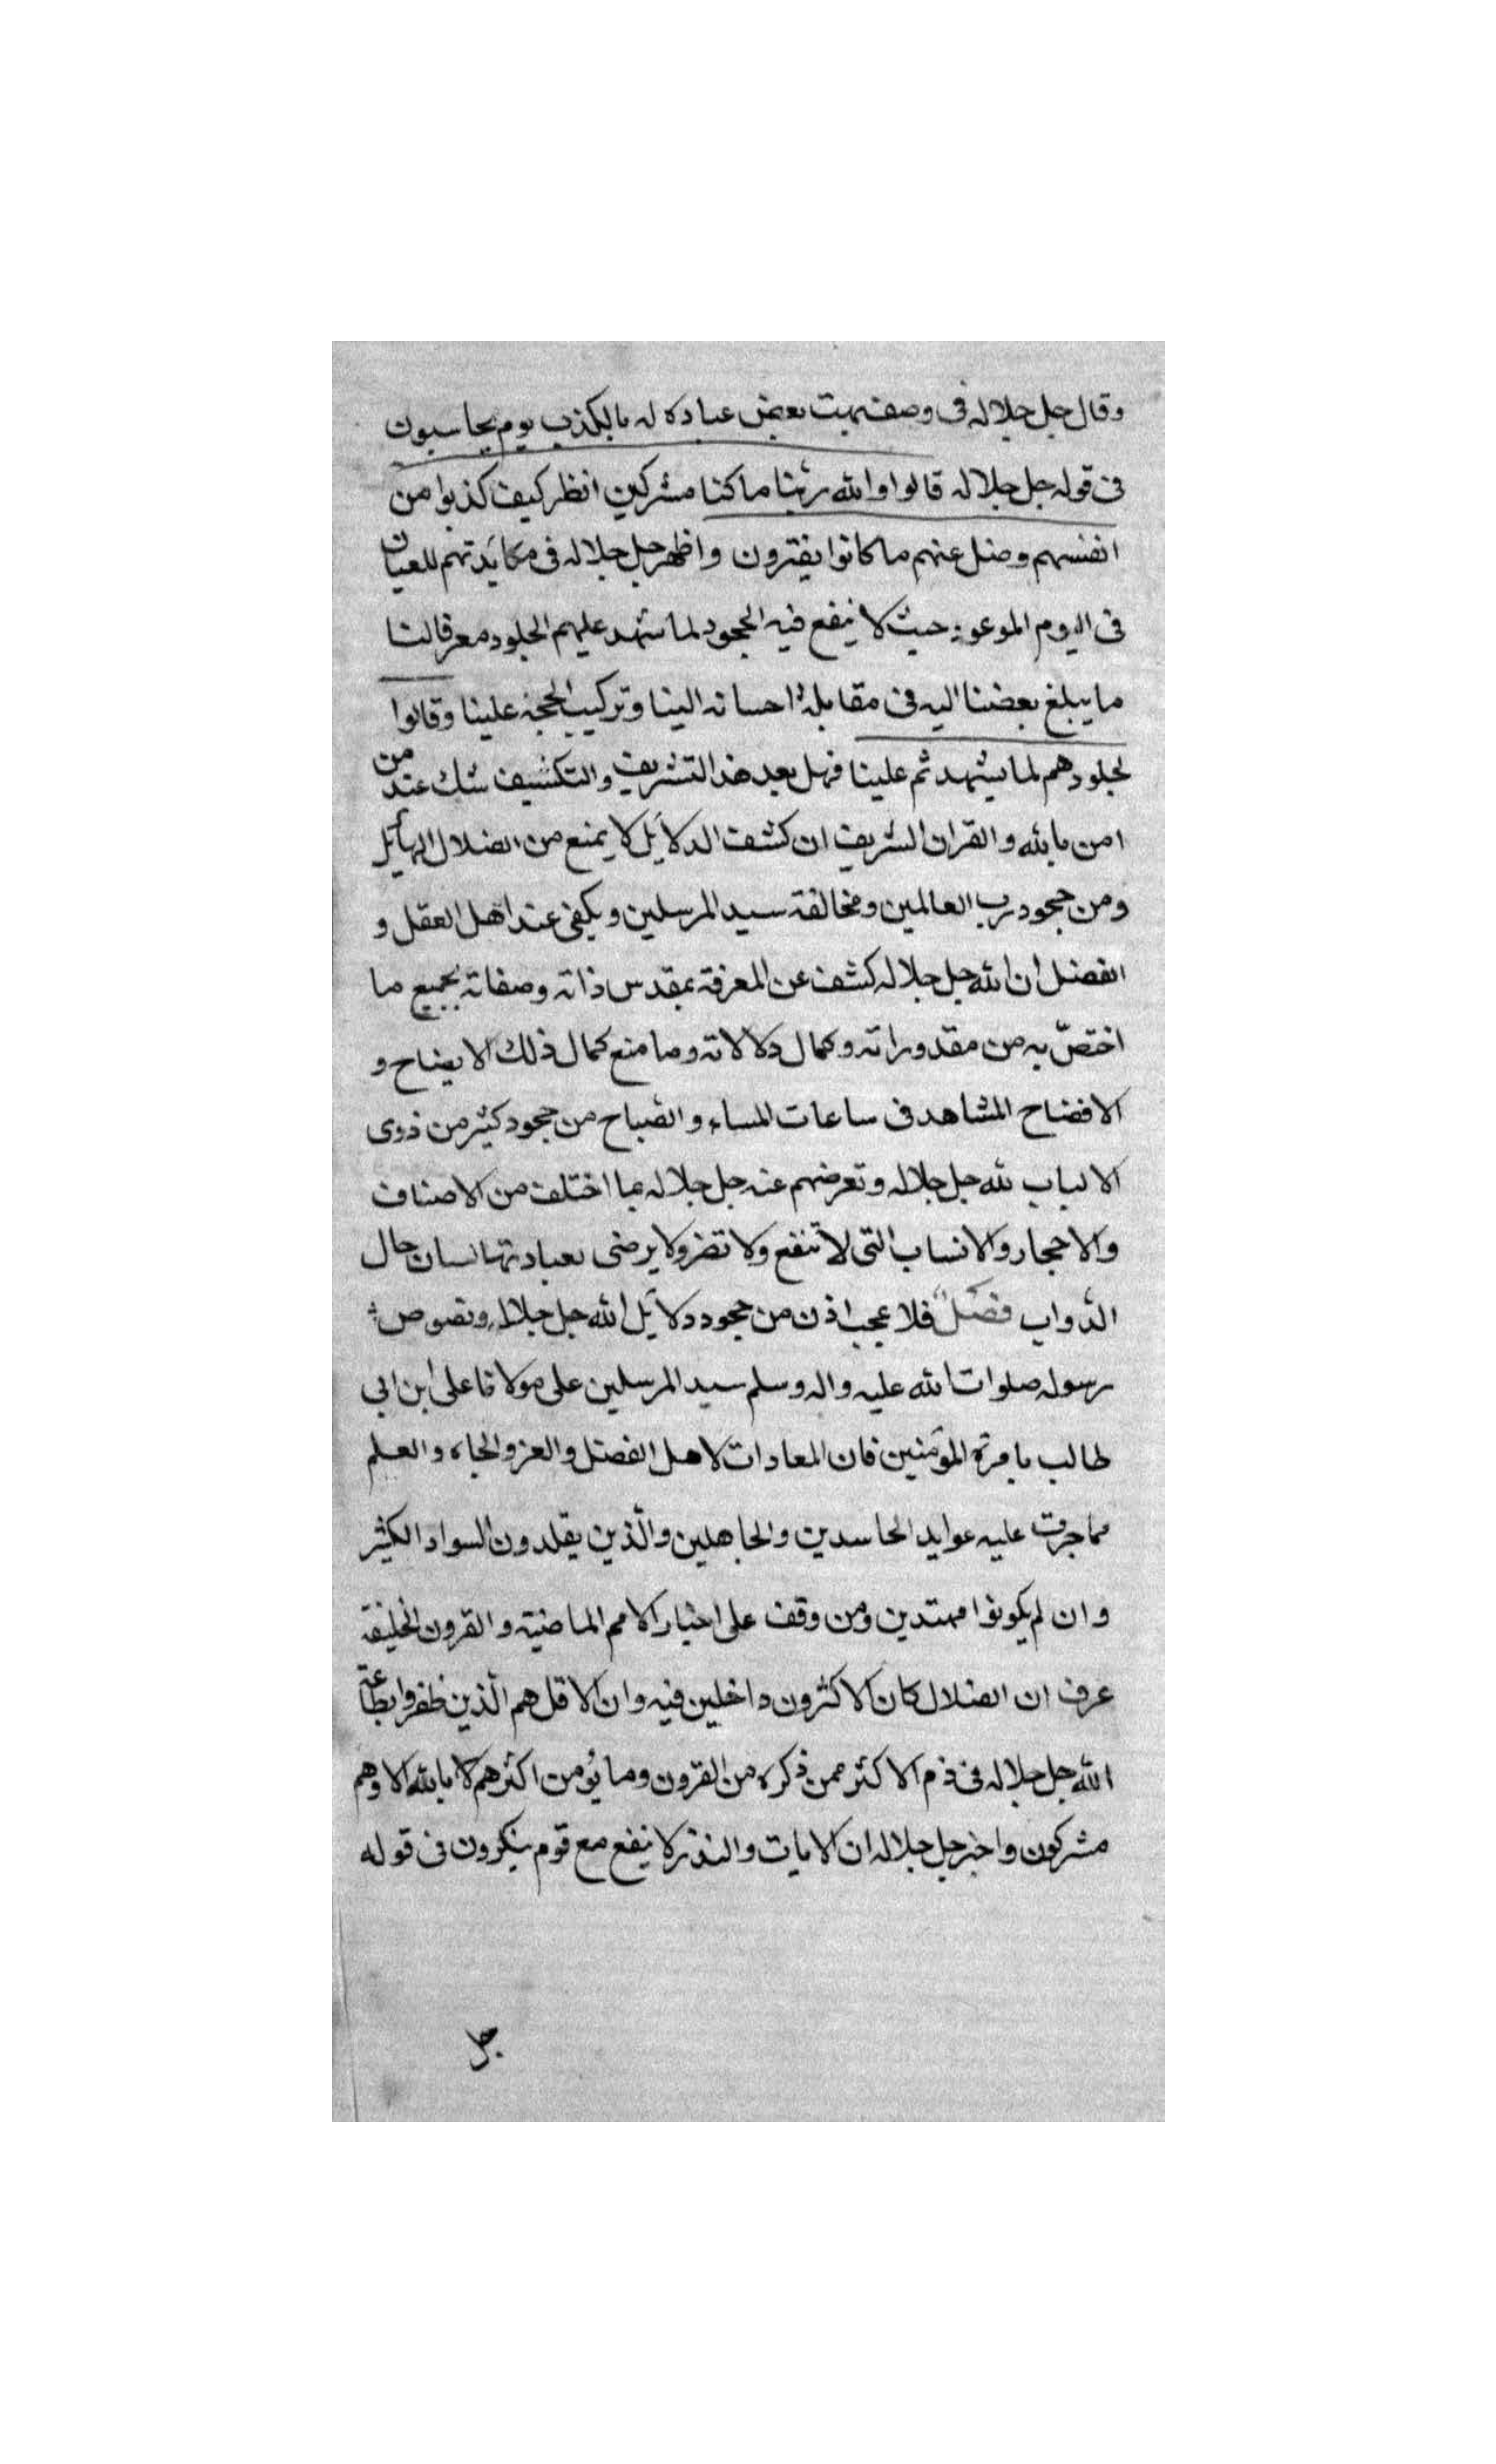 وقال جل جلاله فى وصف بهت بعض عباده له بالكذب يوم يحاسبون
فى قوله جل جلاله قالوا والله ربنا ما كنا مشركين انظر كيف كذبوا من
انفسهم وضل عنهم ما كانوا يفترون واظهر جل جلاله فى مكايدتهم للعيان
فى اليوم الموعود حيث لا ينفع فيه الجحود لما شهد عليهم الجلود معرفا لنا
ما يبلغ بعضنا اليه فى مقابلة احسانه الينا وتركيب الحجة علينا وقالوا
لجلودهم لما شهدتم علينا فهل بعد هذا التشريف والتكشيف شك عند من
امن بالله والقران الشريف ان كشف الدلايل لا يمنع من الضلال الهايل
ومن جحود رب العالمين ومخالفة سيد المرسلين ويكفى عند اهل العقل و
الفضل ان الله جل جلاله كشف عن المعرفة بمقدس ذاته وصفاته بجميع ما
اختصّ به من مقدوراته وكمال دلالاته وما منع كمال ذلك الايضاح و
الافضاح المشاهد فى ساعات المساء والصّباح من جحود كثير من ذوى
الالباب لله جل جلاله وتعرضهم عنه جل جلاله بما اختلف من الاصناف
والاحجار والانساب التى لا تنفع ولا تضر ولا يرضى بعبادتها لسان حال
الدّواب فضلا فلا عجب اذن من جحود دلايل الله جل جلاله ونصوص
رسوله صلوات الله عليه واله وسلم سيد المرسلين على مولانا على ابن ابى
طالب بامرة المؤمنين فان المعادات لاهل الفضل والعز والجاه والعلم
مما جرت عليه عوايد الحاسدين والجاهلين والّذين يقلدون السواد الكثير
وان لم يكونوا مهتدين ومن وقف على اخبار الامم الماضية والقرون الخليفة
عرف ان الضلال كان الاكثرون داخلين فيه وان الاقل هم الّذين ظفروا بطاعته
الله جل جلاله فى ذم الاكثر ممن ذكره من القرون وما يؤمن اكثرهم لا بالله الا وهم
مشركون واخبر جل جلاله ان الايات والنذر لا ينفع مع قوم ينكرون فى قوله
جل